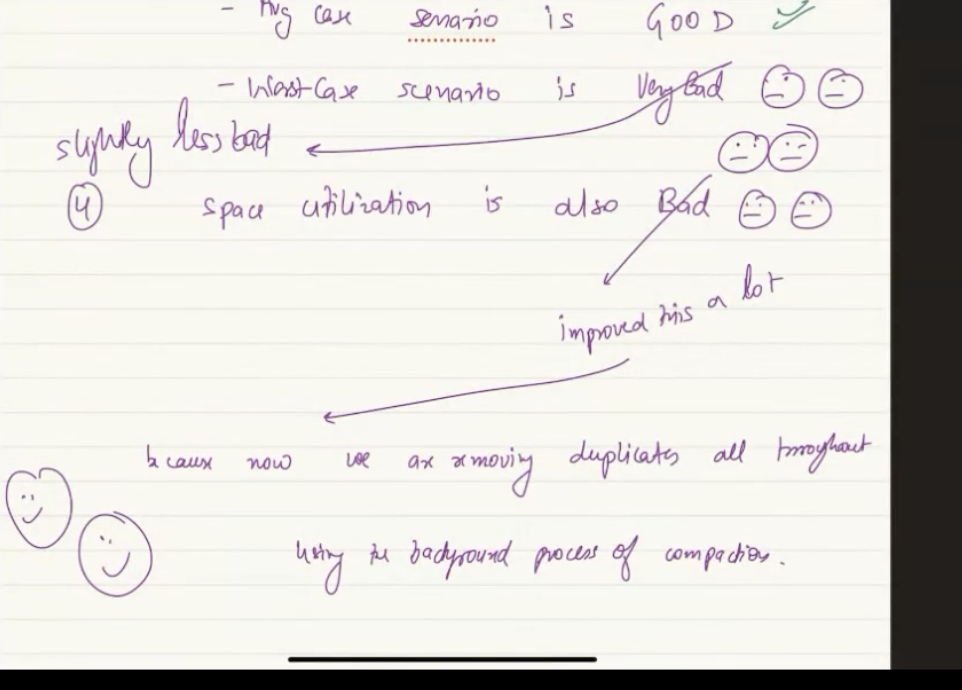 - Avg case senario is GOOD
- Worst Case scenario is Very Bad
slightly less bad
④ space utilization is also Bad
improved this a lot
because now we are removing duplicates all throughout
using the background process of compaction.